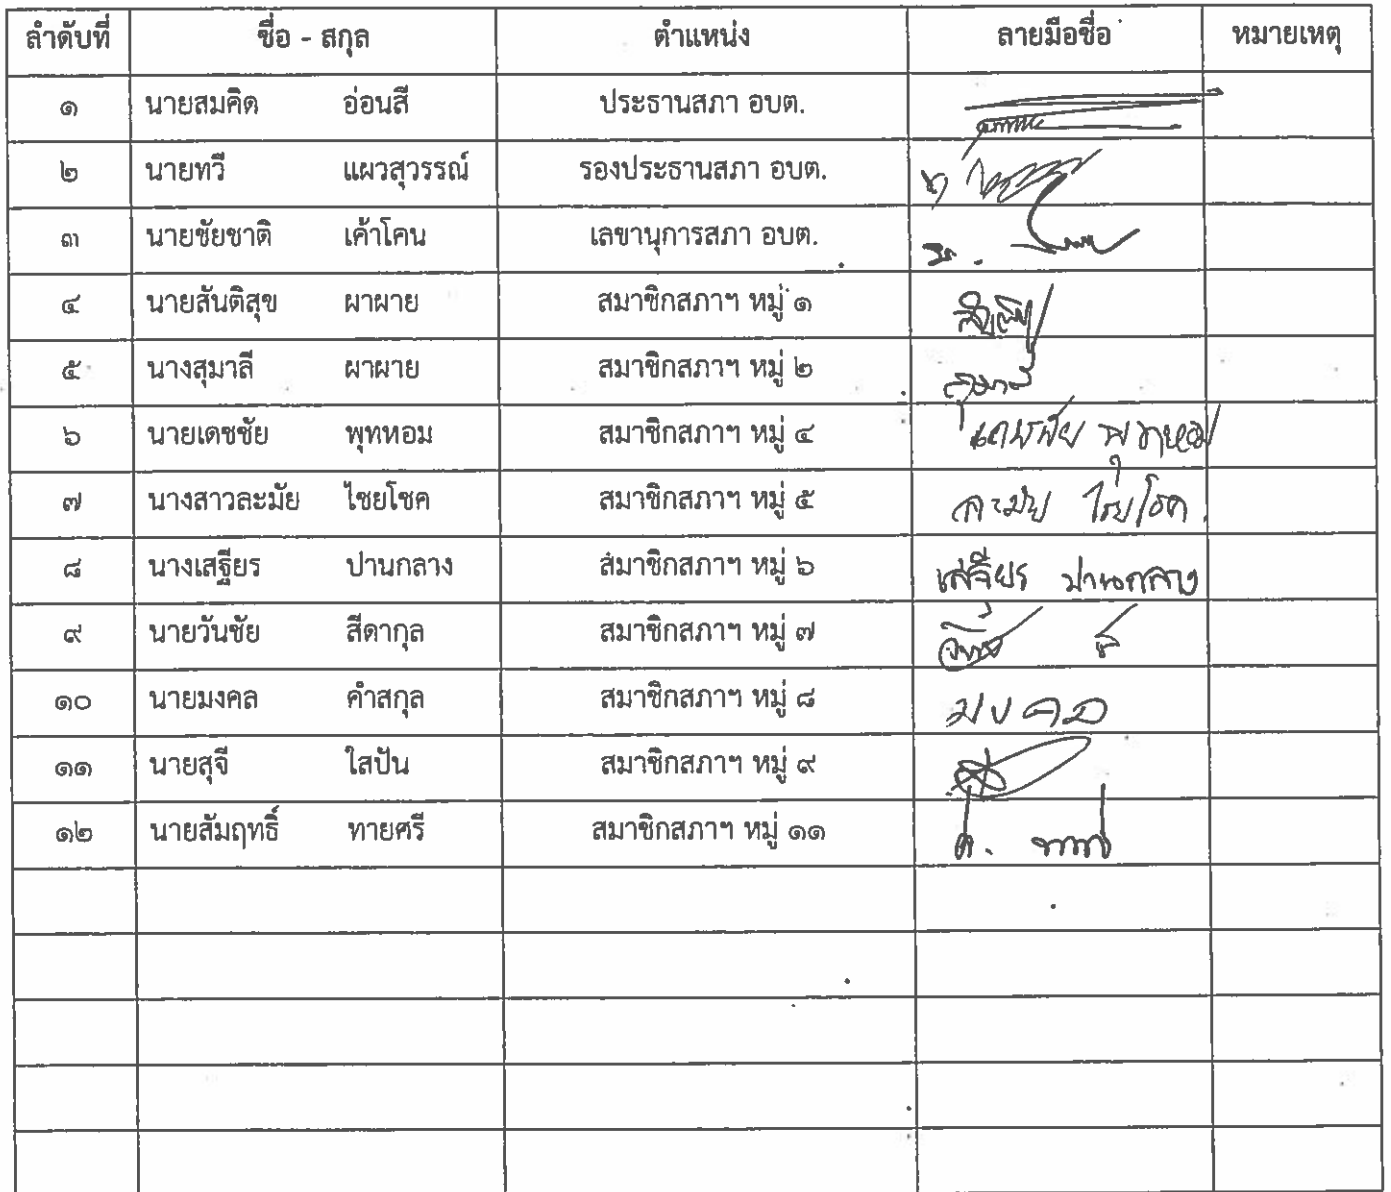 ลำดับที่ ชื่อ - สกุล ตำแหน่ง ลายมือชื่อ หมายเหตุ
๑ นายสมคิด อ่อนสี ประธานสภา อบต.
๒ นายทวี แผวสุวรรณ์ รองประธานสภา อบต.
๓ นายชัยชาติ เค้าโคน เลขานุการสภา อบต.
๔ นายสันติสุข ผาผาย สมาชิกสภาฯ หมู่ ๑
๕ นางสุมาลี ผาผาย สมาชิกสภาฯ หมู่ ๒ สุมาลี
๖ นายเดชชัย พุทหอม สมาชิกสภาฯ หมู่ ๔ เดชชัย พุทหอม
๗ นางสาวละมัย ไชยโชค สมาชิกสภาฯ หมู่ ๕ ละมัย ไชยโชค
๘ นางเสฐียร ปานกลาง สมาชิกสภาฯ หมู่ ๖ เสฐียร ปานกลาง
๙ นายวันชัย สีดากุล สมาชิกสภาฯ หมู่ ๗
๑๐ นายมงคล คำสกุล สมาชิกสภาฯ หมู่ ๘ มงคล
๑๑ นายสุจี ใสปัน สมาชิกสภาฯ หมู่ ๙
๑๒ นายสัมฤทธิ์ ทายศรี สมาชิกสภาฯ หมู่ ๑๑